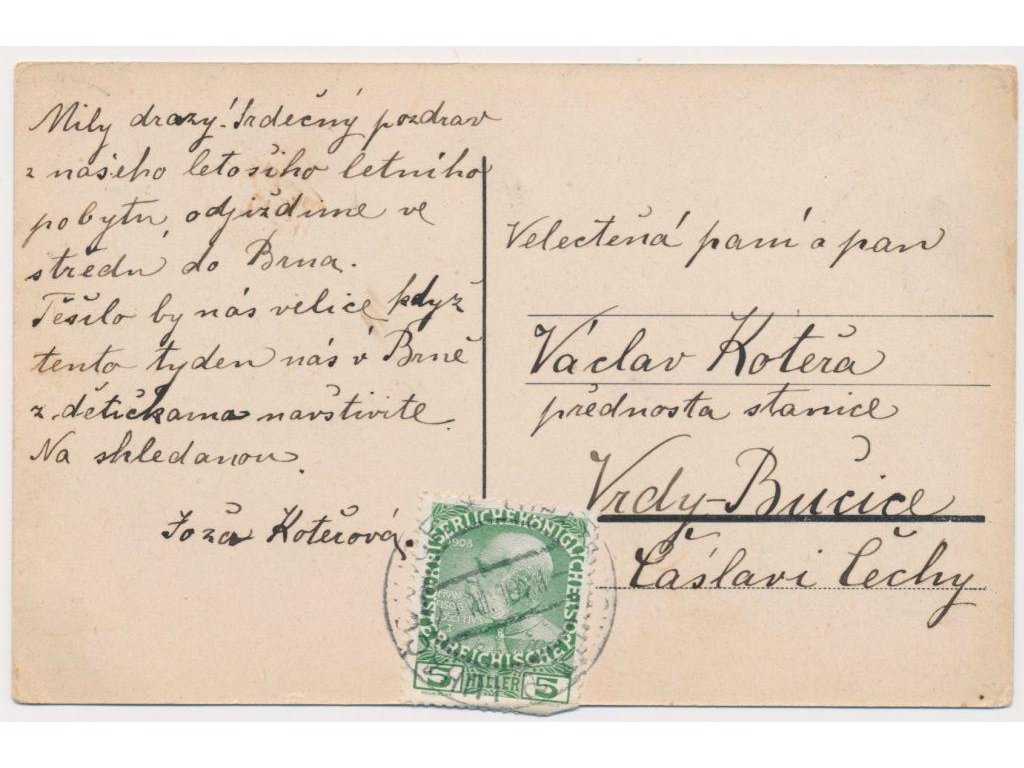 Milý drazý! Srdečný pozdrav
z našeho letošího letního
pobytu, odjiždíme ve
středu do Brna.
Těšilo by nás velice když
tento tyden nás v Brně
z dětičkama navštivite.
Na shledanou.
Joža Kotěrová.
Velectěná paní a pan
Václav Kotěra
přednosta stanice
Vrdy-Bučice
Čáslavi Čechy
KAISERLICHE KÖNIGLICHE ÖSTERREICHISCHE POST
1908
5 HELLER 5